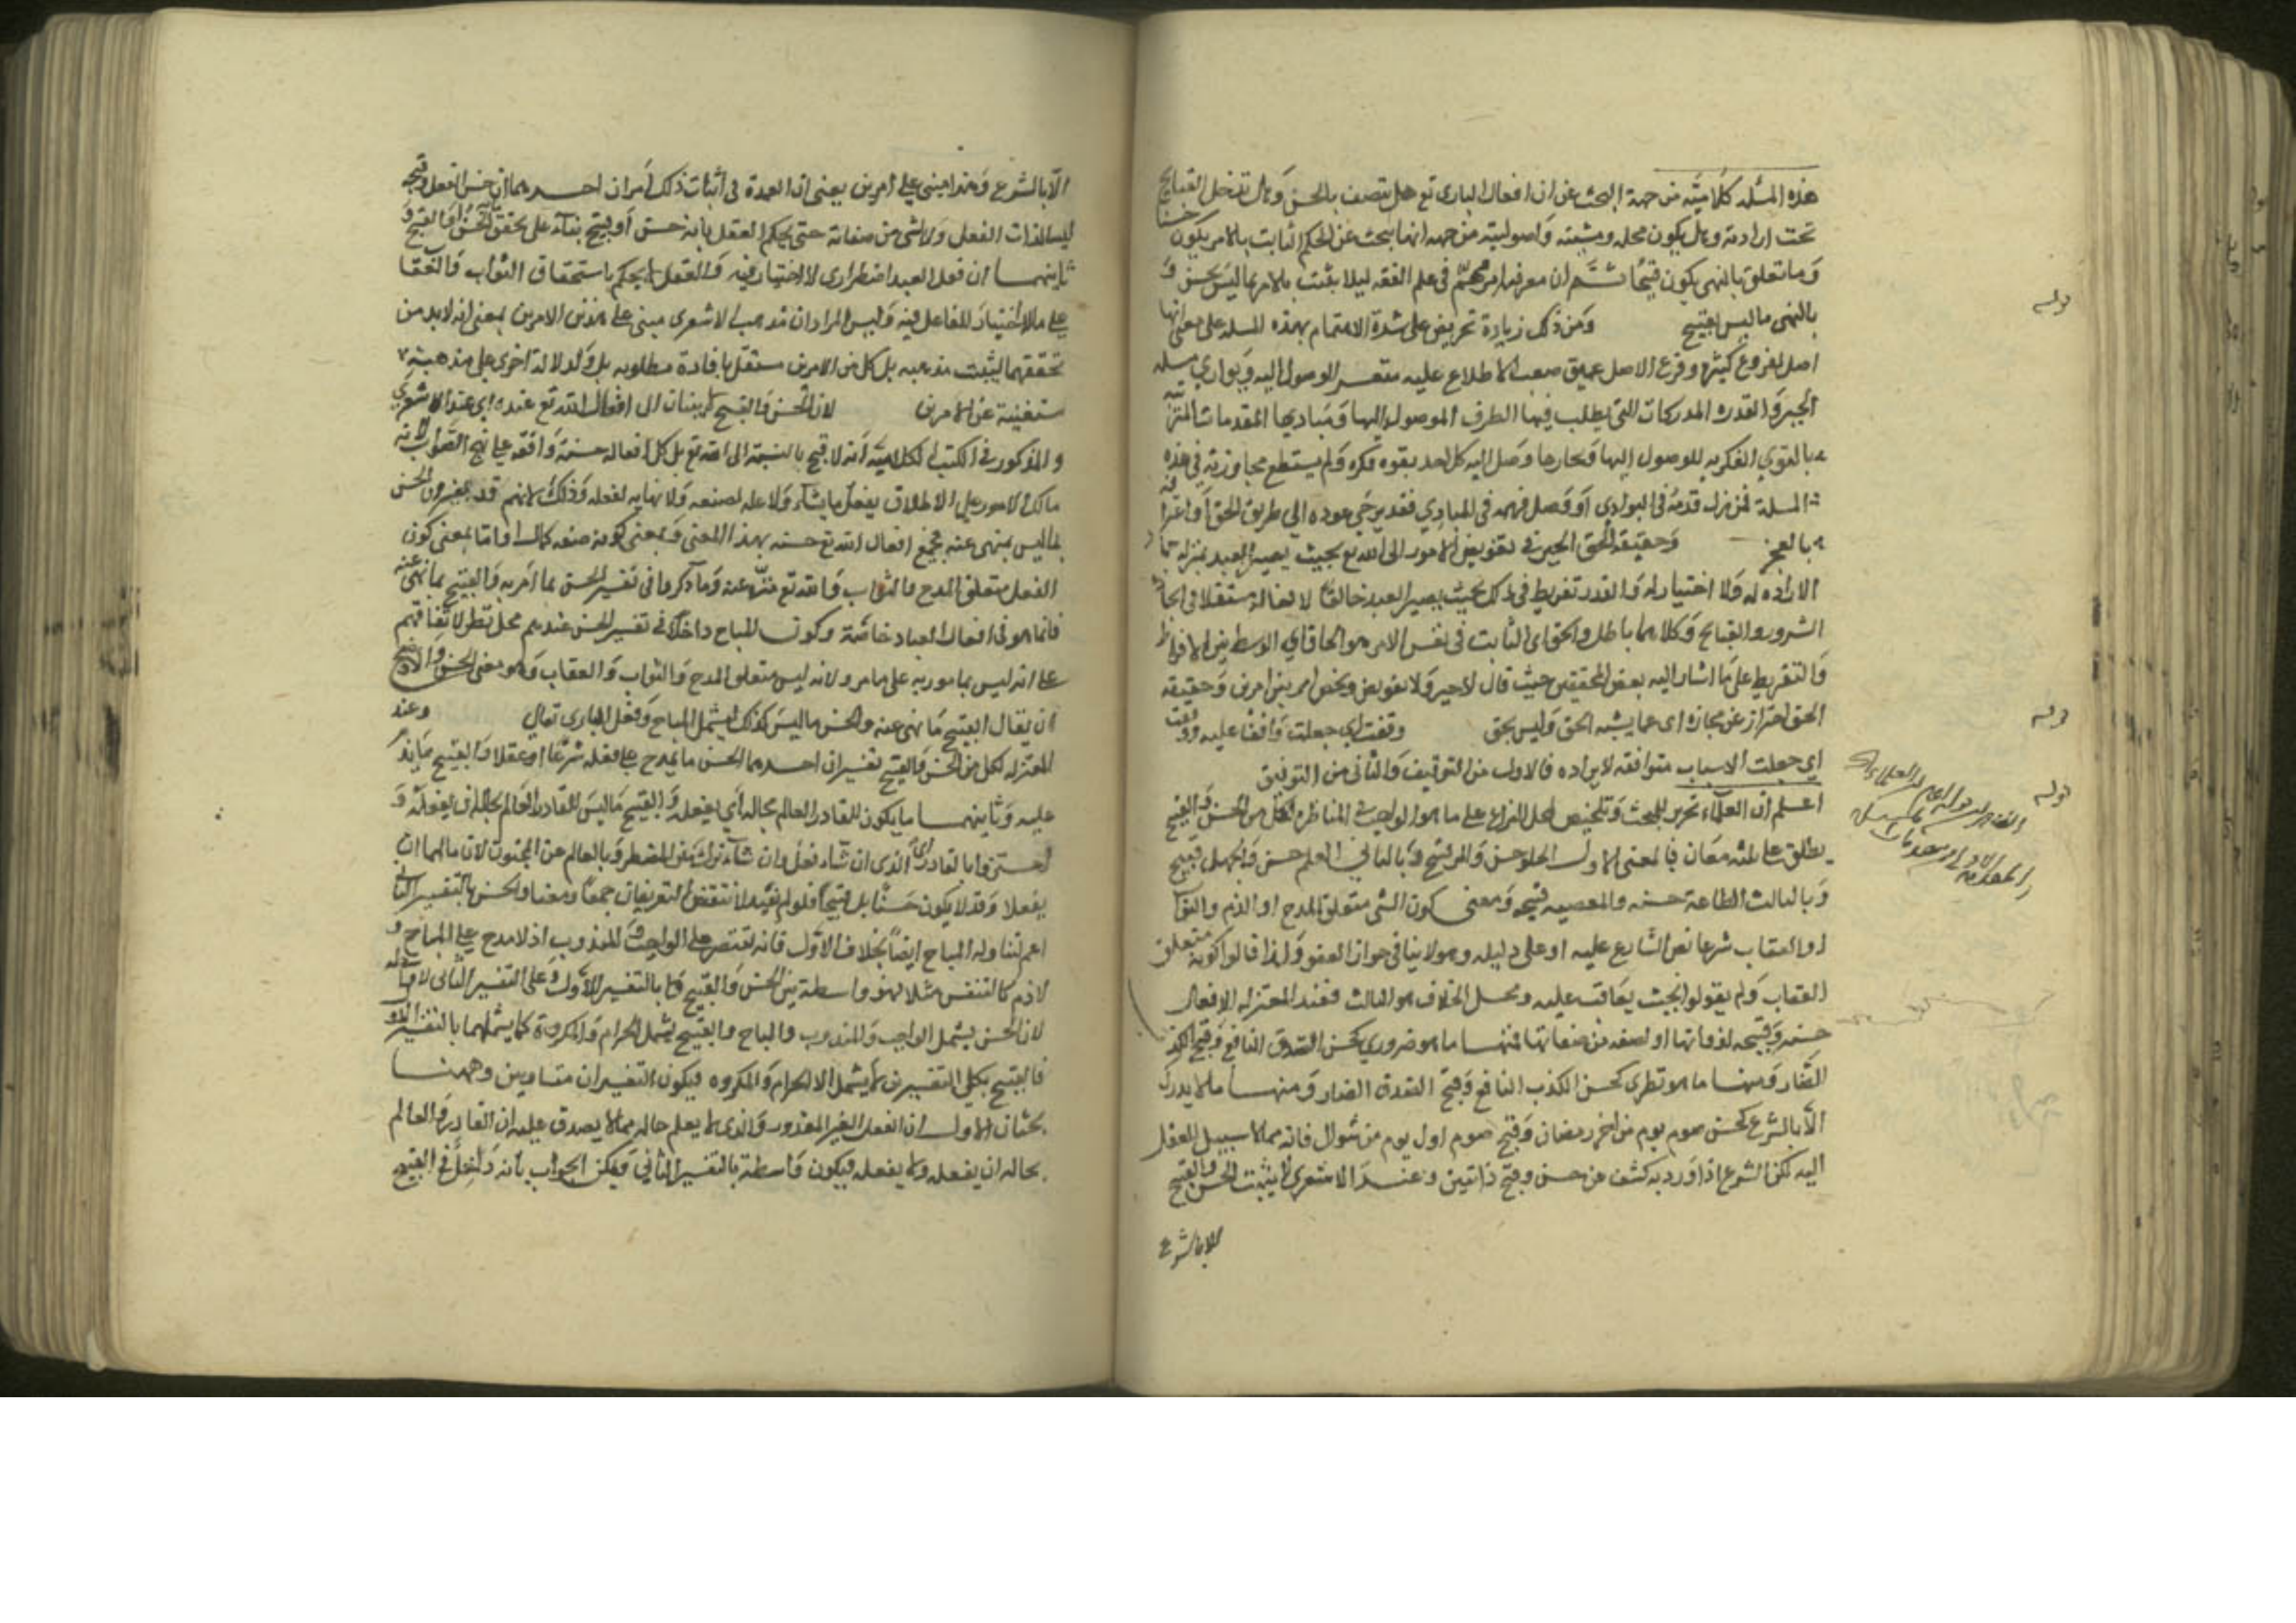 هذه المسئلة كلامية من جهة البحث عن ان افعال البارى تع هل يتصف بالحسن وهل تدخل القبايح
تحت ارادته وهل يكون بخلقه ومشيته واصولية من جهة انها تبحث عن ان الحكم الثابت بالامر يكون حسنا
وما تعلق به النهى يكون قبيحا ثم ان معرفتها امر مهم فى علم الفقه ليلا يثبت بالامر ما ليس بحسن و
بالنهى ما ليس بقبيح ومن ذلك زيادة تحريض على شدة الاهتمام بهذه المسئلة على معنى انها
اصل لفروع كثيرة وفرع لاصل عميق صعب الاطلاع عليه متعسر الوصول اليه وبوادي مسئلة
الجبر والقدر المدركات التى يطلب فيها الطرف الموصول اليها ومباديها المقدمات المترتبة
بالقوي الفكرية للوصول اليها وبحارها وصل اليه كل احد بقوة فكره ولم يستطع مجاوزته فى هذه
المسئلة فمن زل قدمه فى البوادي او وصل فهمه فى المبادي فقد يرجي عوده الى طريق الحق واعترافه
بالعجز وحقيقة الحق الجبر فى تفويض الامور الى الله تع بحيث يصير العبد بمنزلة جماد لا
ارادة له ولا اختيار له والقدر تفريط فى ذلك بحيث يصير العبد خالقا لافعاله مستقلا فى ايجاد
الشرور والقبايح وكلاهما باطل والحق اى الثابت فى نفس الامر هو الحاق اي الوسط بين الافراط
والتفريط على ما اشار اليه بعض المحققين حيث قال لا جبر ولا تفويض ولكن امر بين امرين وحقيقة
الحق احتراز عن مجازه اى عما يشبه الحق وليس بحق وقفت اي جعلت واقفا عليه ووفقت
اي جعلت الاسباب متوافقة لايراده فالاول من التوقيف والثانى من التوفيق
اعلم ان العلماء تحرير للمبحث وتلخيص لمحل النزاع على ما هو الواجب فى المناظرة فكل من الحسن والقبيح
يطلق على ثلثة معان فبالمعنى الاول الحلو حسن والمر قبيح وبالثانى العلم حسن والجهل قبيح
وبالثالث الطاعة حسنة والمعصية قبيحة ومعنى كون الشى متعلق المدح او الذم والثواب
او العقاب شرعا نص الشارع عليه او على دليله وهو لا ينافى جواز العفو ولذا قالوا كونه متعلق
العقاب ولم يقولوا بحيث يعاقب عليه ومحل الخلاف هو الثالث فعند المعتزلة الافعال
حسنة وقبيحة لذواتها او لصفة من صفاتها فمنها ما هو ضروري كحسن الصدق النافع وقبح الكذب
الضار ومنها ما هو نظرى كحسن الكذب النافع وقبح الصدق الضار ومنها ما لا يدرك
الا بالشرع كحسن صوم يوم من اخر رمضان وقبح صوم اول يوم من شوال فانه مما لا سبيل للعقل
اليه لكن الشرع اذا ورد به كشف عن حسن وقبح ذاتيين وعند الاشعرى لا يثبت الحسن والقبح
الا بالشرع
قوله
قوله
قوله
الا بالشرع وهذا مبنى على امرين يعنى ان العمدة فى اثبات ذلك امران احدهما ان حسن الفعل وقبحه
ليسا لذات الفعل ولا لشى من صفاته حتى يحكم العقل بانه حسن او قبيح بناء على تحقق ما به الحسن او القبح و
ثانيهما ان فعل العبد اضطرارى لا اختيار فيه والعقل لا يحكم باستحقاق الثواب والعقاب
على ما لا اختيار للفاعل فيه وليس المراد ان مذهب الاشعرى مبنى على هذين الامرين بمعنى انه لابد من
تحققهما ليثبت مذهبه بل كل من الامرين مستقل بافادة مطلوبه بل وله ادلة اخرى على مذهبه
مستغنية عن الامرين لان الحسن والقبح لا ينسبان الى افعال الله تع عنده اى عند الاشعري
والمذكور فى الكتب الكلامية انه لا قبح بالنسبة الى الله تع بل كل افعاله حسنة واقعة على نهج الصواب لانه
مالك الامور على الاطلاق يفعل ما يشاء ولا علة لصنعه ولا نهاية لفعله وذلك لانهم قد يفسرون الحسن
بما ليس بمنهى عنه فجميع افعال الله تع حسنة بهذا المعنى وبمعنى كونه صفة كمال اما بمعنى كون
الفعل متعلق المدح والثواب فالله تع منزه عنه وما ذكروا فى تفسير الحسن بما امر به والقبيح بما نهى عنه
فانما هو فى افعال العباد خاصة وكون المباح داخلا فى تفسير الحسن عندهم محل نظر لاتفاقهم
على انه ليس بمامور به على ما مر ولانه ليس متعلق المدح والثواب والعقاب وهو معنى الحسن والاوضح
ان يقال القبيح ما نهى عنه والحسن ما ليس كذلك ليشمل المباح وفعل البارى تعالى وعند
المعتزلة لكل من الحسن والقبيح تفسيران احدهما الحسن ما يمدح على فعله شرعا او عقلا والقبيح ما يذم
عليه وثانيهما ما يكون للقادر العالم بحاله اي يفعله والقبيح ما ليس للقادر العالم بحاله ان يفعله و
احترزوا بالقادر اي الذى ان شاء فعل وان شاء ترك عن المضطر وبالعالم عن المجنون لان ما لهما ان
يفعلا وقد لا يكون حسنا بل قبيحا فلو لم يقيد لانتقض التعريفان جمعا ومنعا والحسن بالتفسير الثانى
اعم لتناوله المباح ايضا بخلاف الاول فانه تقتصر على الواجب والمندوب اذ لا مدح على المباح و
لا ذم كالتنفس مثلا فهو واسطة بين الحسن والقبيح بالتفسير الاول وعلى التفسير الثانى لا واسطة
لان الحسن يشمل الواجب والمندوب والمباح والقبيح يشمل الحرام والمكروه كما يشملهما بالتفسير الاول
فالقبيح بكلى التفسيرين لا يشمل الا الحرام والمكروه فيكون التفسيران متساويين وههنا
بحثان الاول ان الفعل الغير المقدور والذى لا يعلم حاله مما لا يصدق عليه ان القادر والعالم
بحاله ان يفعله ولا يفعله فيكون واسطة بالتفسير الثانى ويمكن الجواب بانه داخل فى القبيح